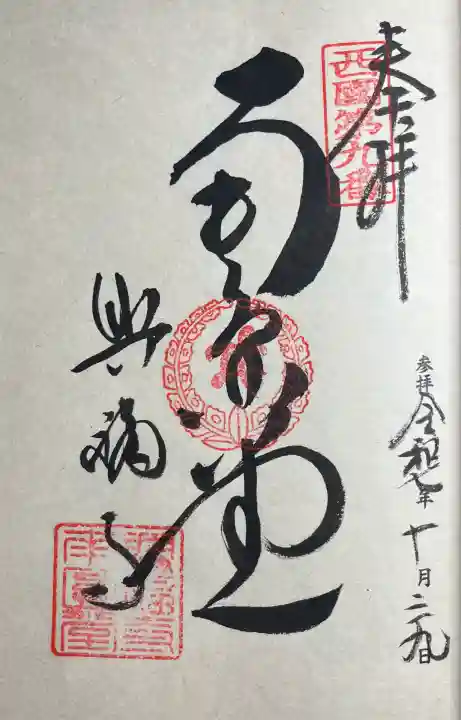 奉拝
西國第九番
参拝 令和七年十月二十九日
南圓堂
興福寺
興福寺
南圓堂